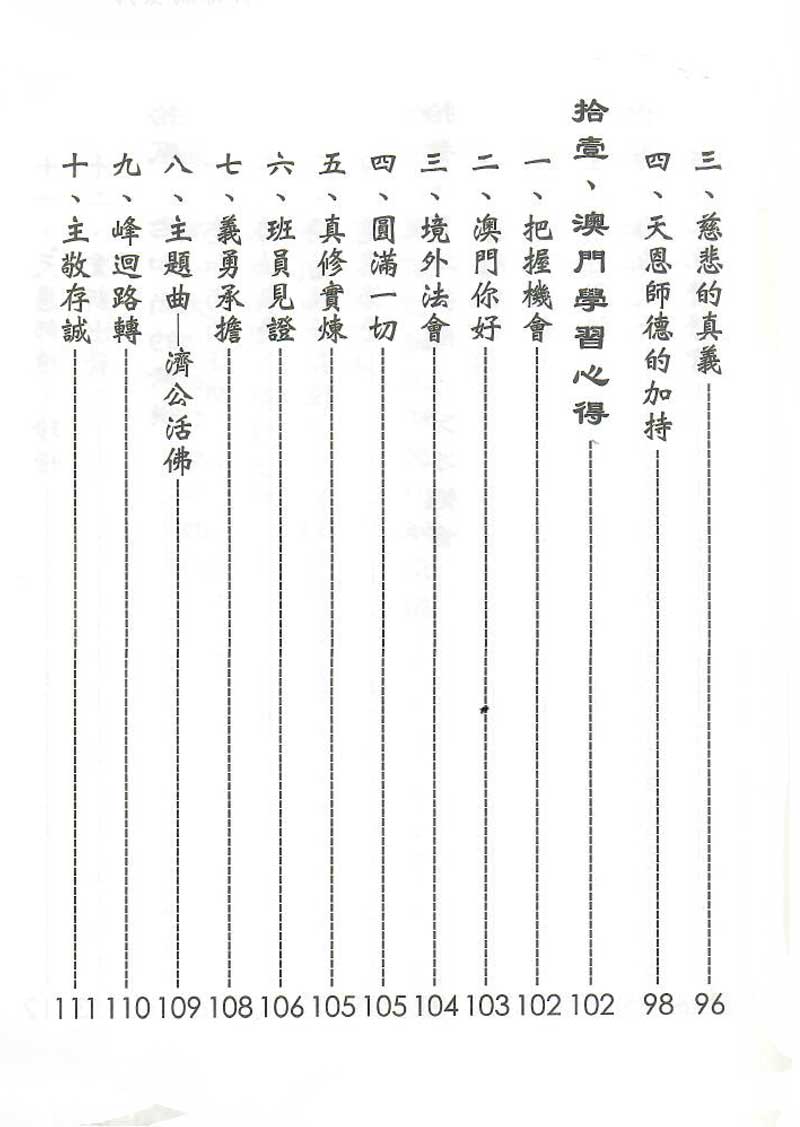 三、慈悲的真義 96
四、天恩師德的加持 98
拾壹、澳門學習心得 102
一、把握機會 102
二、澳門你好 103
三、境外法會 104
四、圓滿一切 105
五、真修實煉 105
六、班員見證 106
七、義勇承擔 108
八、主題曲—濟公活佛 109
九、峰迴路轉 110
十、主敬存誠 111